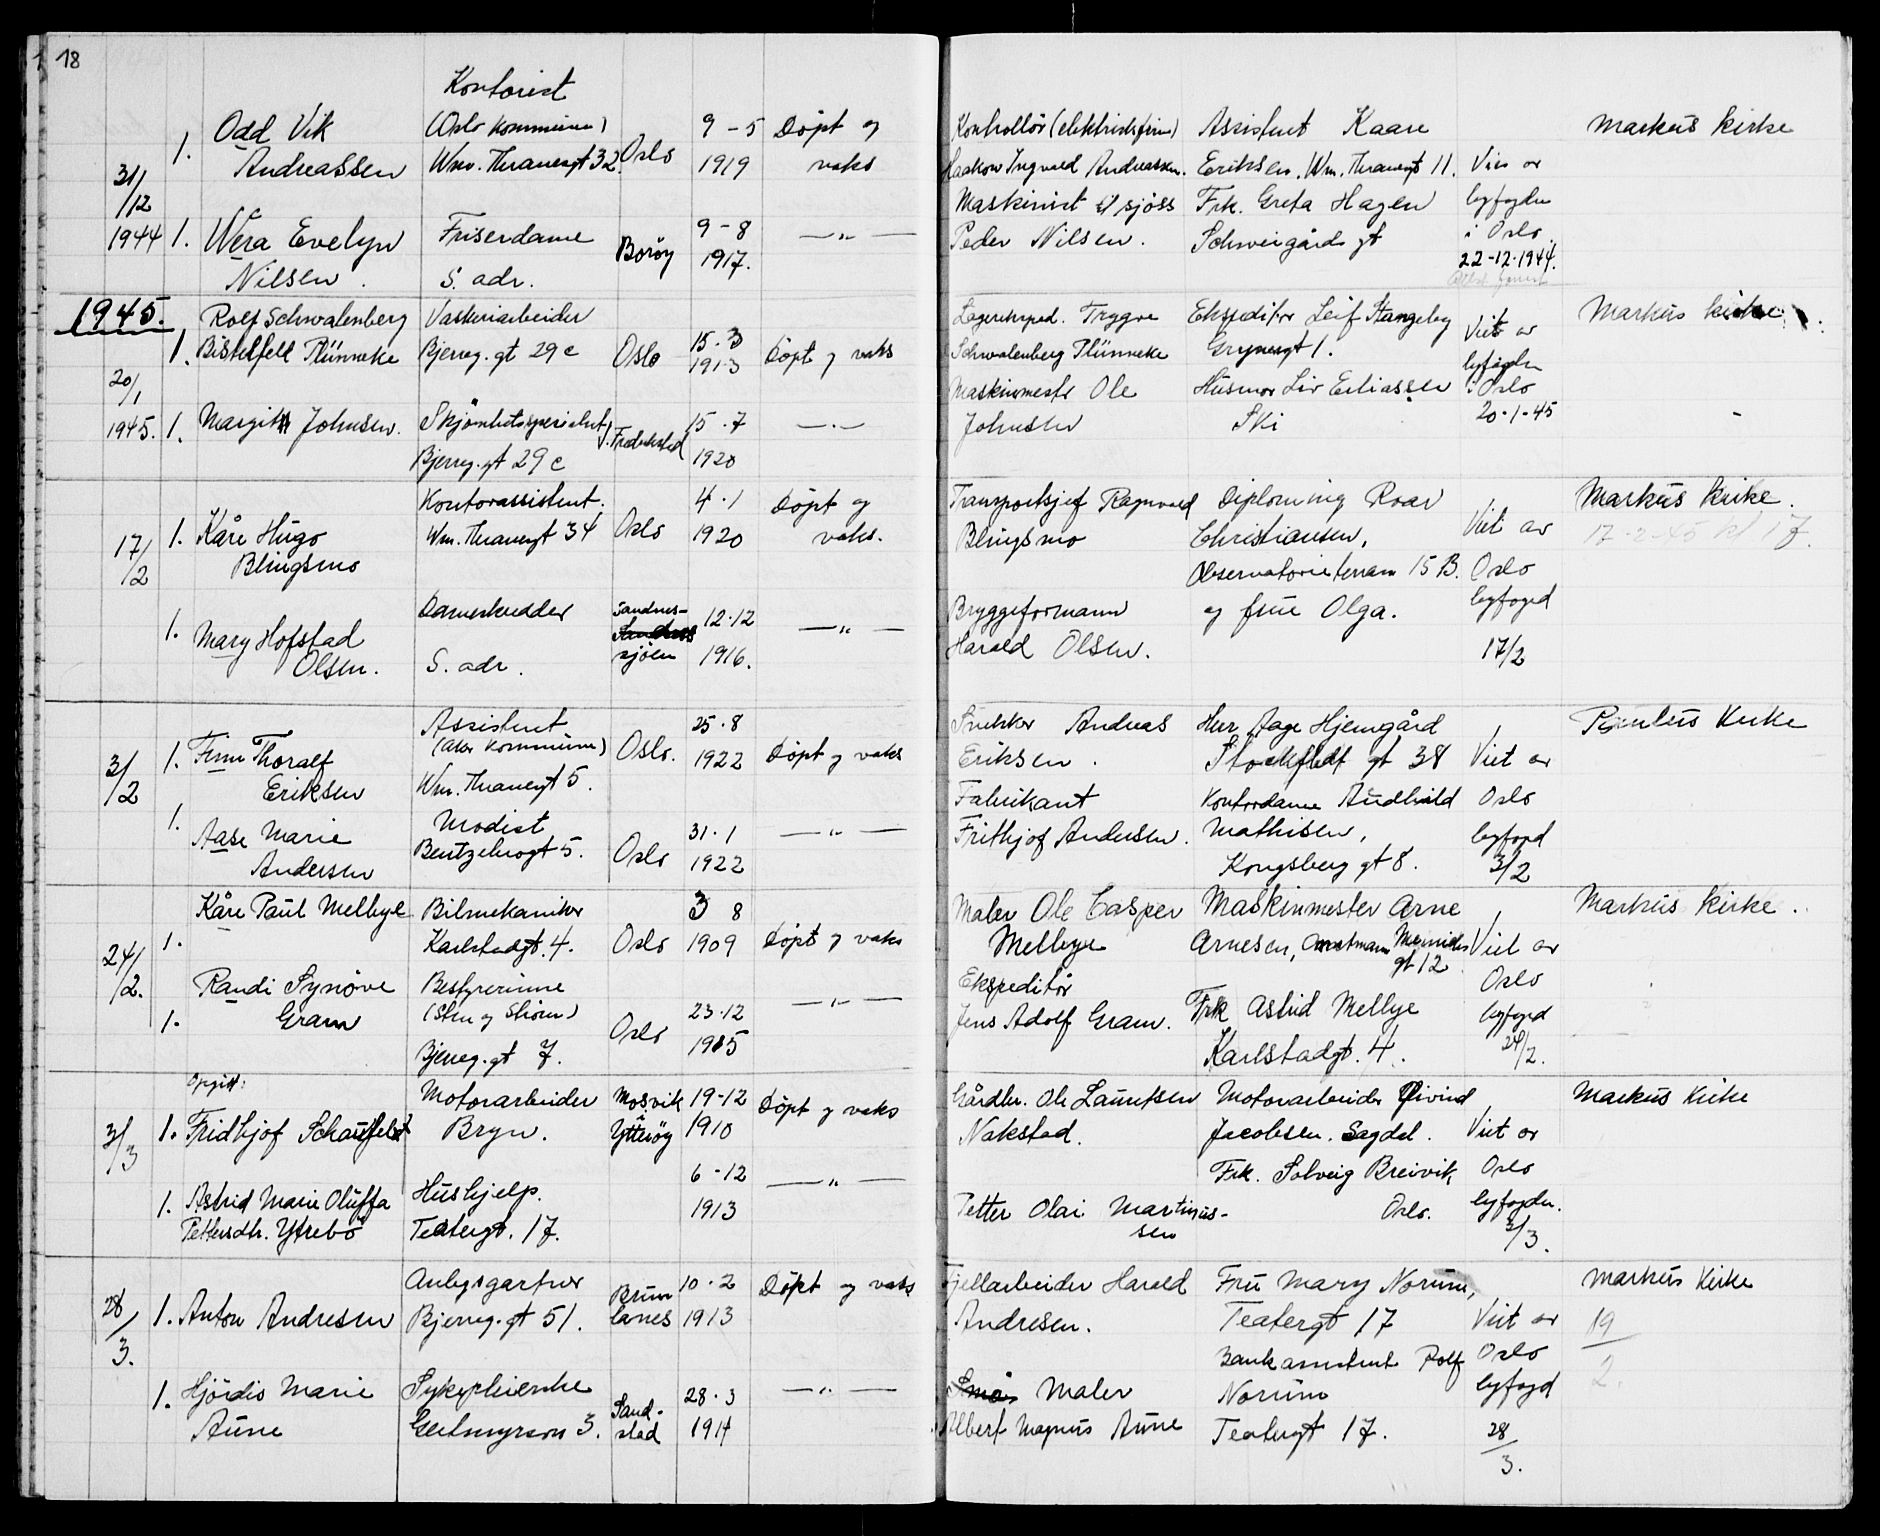 18
Kontorist
Odd Vik (Oslo kommune) 9-5 Döpt og Kontrollör (elektriskfirm) Assistent Kaare Markus kirke
1. Andreassen Wm. Thranesgt 32. Oslo 1919 vaks Haakon Ingvald Andreassen. Eriksen, Wm. Thranesgt 11. Vies av
31/12 Maskinist til sjöss Frk. Greta Hagen byfogden
1944 1. Wera Evelyn Friserdame Boröy 9-8 —„— Peder Nilsen. Schweigårds gt i Oslo
Nilsen. S. adr. 1917. 22-12-1944.
1945.
Rolf Schwalenberg Vaskeriarbeider 15.3 Lagereksped. Trygve Ekspeditör Leif Stangeby Markus kirke
1. Bistelfell Plünneke Bjerreg. gt 29 c Oslo 1913 Döpt og vaks Schwalenberg Plünneke Grünersgt 1. Viet av
20/1 Maskinmestr Ole Husmor Liv Eriliassen byfogden i Oslo
1945. 1. Margith Johnsen. Skjönhetsspesialist Fredrikstad 15.7 —„— Johnsen Ski 20-1-45
Bjerreg. gt 29 c 1920
Kontorassistent. 4.1 Döpt og Transportsjef Ragnvald Diploming Roar Markus Kirke.
17/2 1. Kåre Hugo Wm. Thranesgt 34 Oslo 1920 vaks. Blingsmo Christiansen, Viet av 17-2-45 kl 17.
Blingsmo Observatorieterrasse 15 B. Oslo
Dameskredder Sandnes- 12.12 Bryggeformann og frue Olga. byfogd
1. Mary Hofstad sjöen —„— Harald Olsen. 17/2
Olsen. S. adr. 1916.
Assistent 25.8 Snekker Andreas Herr Aage Hjemgård Paulus Kirke
3/2 1. Finn Thoralf (Aker kommune) Oslo. 1922 Döpt og vaks Eriksen. Stockfledt gt 38 Viet av
Eriksen Wm. Thranesgt 5. Fabrikant Kontordame Audhild Oslo
1. Aase Marie Modist 31.1 —„— Frithjof Andersen. Mathisen, byfogd
Andersen Bentzebrogt 5. Oslo 1922 Kongsberg gt 8. 3/2
Kåre Paul Melbye Bilmekaniker 3 8 Maler Ole Casper Maskinmester Arne Markus Kirke.
24/2. 1. Karlstadgt. 4. Oslo 1909 Döpt og vaks Melbye Arnesen, Amtmann Meinichs gt 12 Viet av
Randi Synöve Bestyrerinne —„— Ekspeditör Oslo
1. Gram (Sten og Ström) Oslo 23.12 Jens Adolf Gram. Frk Astrid Melbye byfogd
Bjerreg. gt 7. 1915 Karlstadgt. 4. 24/2.
Opgitt:
Motorarbeider Mosvik 19-12 Döpt og vaks Gårdbr. Ole Lauritsen Motorarbeider Øivind Markus Kirke
3/3 1. Fridhjof Schaufeldt Bryn. Ytteröy 1910 Nakstad. Jacobsen. Sagdal. Viet av
6-12 —„— Frk. Solveig Breivik, Oslo
1. Astrid Marie Oluffa Hushjelp. 1913 Petter Olai Martinus- Oslo. byfogden.
Pettersdtr. Ytrebö Teatergt. 17. sen 3/3.
Anlegsgartner Brun 10.2 Döpt og vaks Fjellarbeider Harald Fru Mary Norum, Markus Kirke
28/3. 1. Anton Andresen Bjerreg. gt 51. lanes 1913 Andresen. Teatergt 17 Viet av 19/2.
Bankassistent Rolf Oslo
1. Hjördis Marie Sykepleierske Sand- 28.3 —„— Maler Norum byfogd
Aune Geitmyrsvn 3. stad 1914 Albert Magnus Aune Teatergt 17. 28/3.